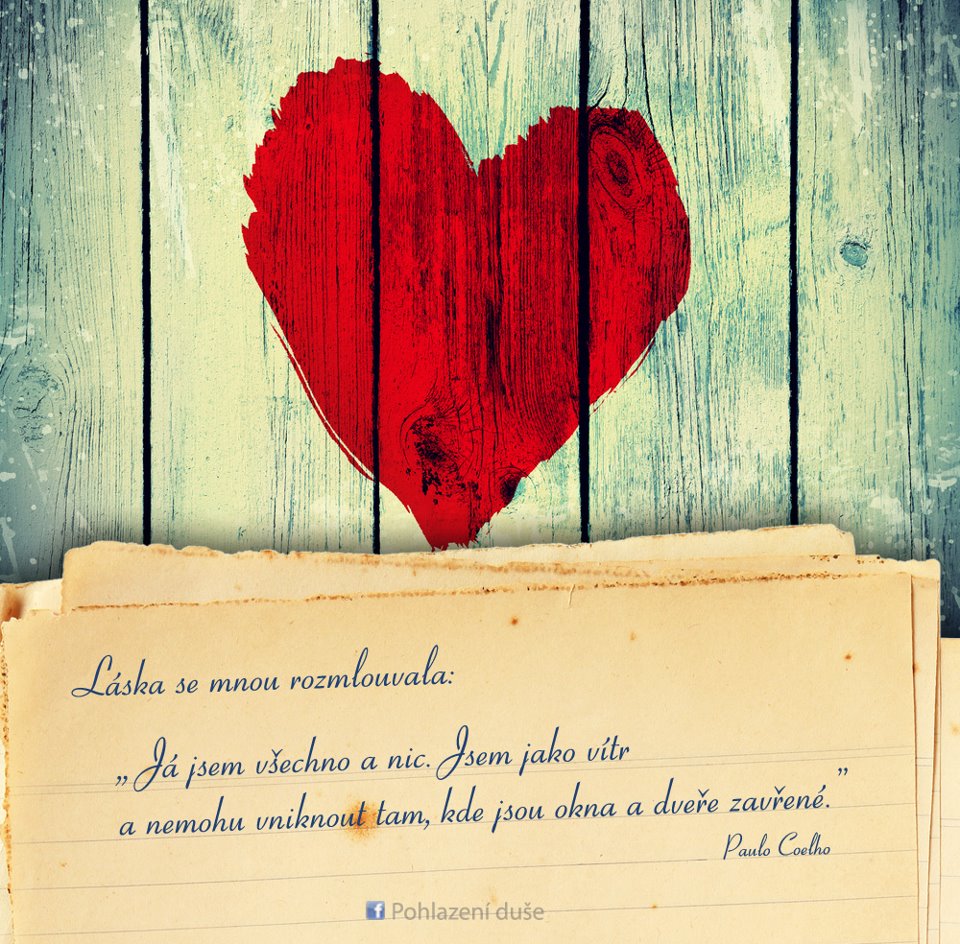 Láska se mnou rozmlouvala:
„Já jsem všechno a nic. Jsem jako vítr
a nemohu vniknout tam, kde jsou okna a dveře zavřené.”
Paulo Coelho
Pohlazení duše